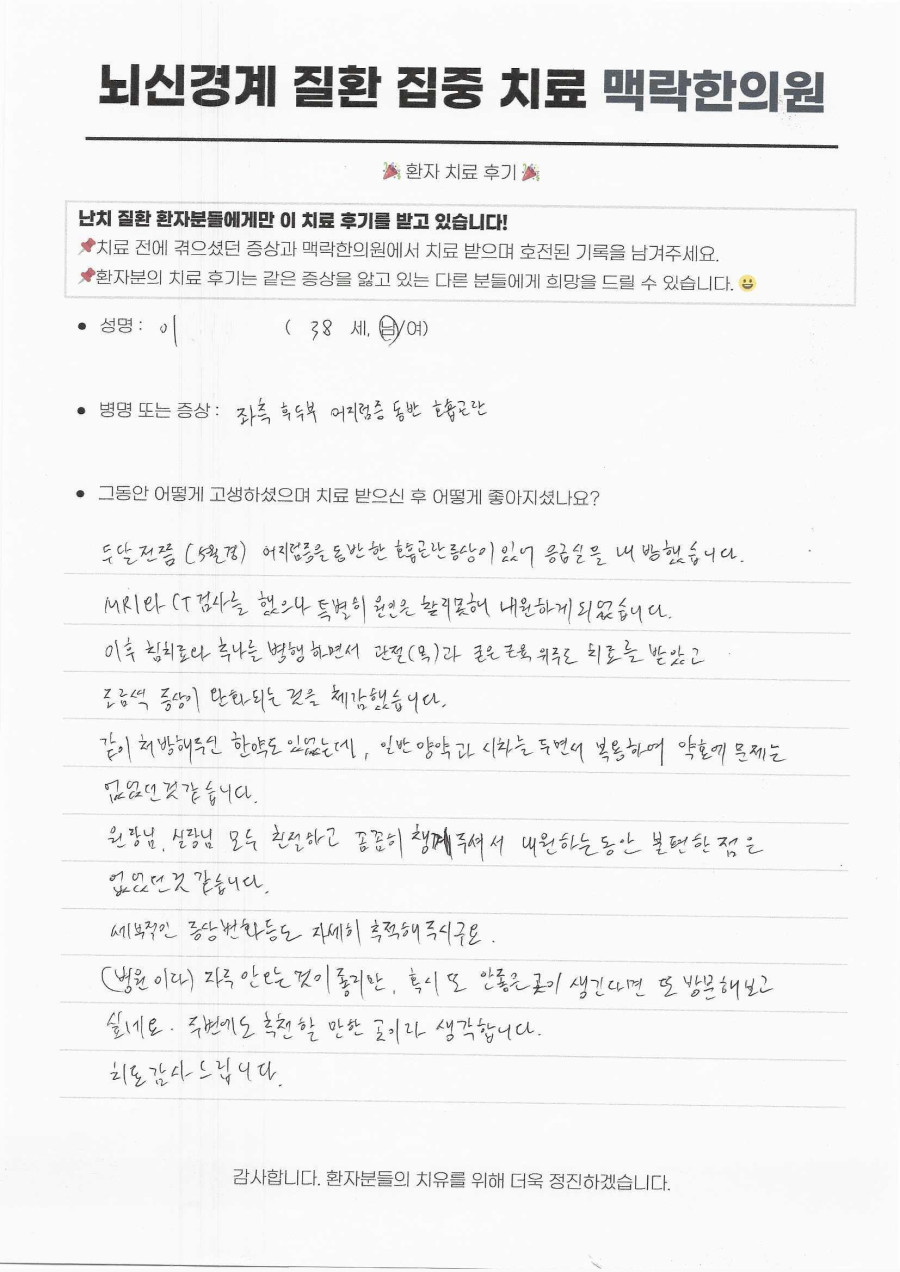 뇌신경계 질환 집중 치료 맥락한의원
🎉 환자 치료 후기 🎉
난치 질환 환자분들에게만 이 치료 후기를 받고 있습니다!
📌치료 전에 겪으셨던 증상과 맥락한의원에서 치료 받으며 호전된 기록을 남겨주세요.
📌환자분의 치료 후기는 같은 증상을 앓고 있는 다른 분들에게 희망을 드릴 수 있습니다. 😀
• 성명 : 이 ( 38 세, 남/여)
• 병명 또는 증상 : 좌측 후두부 어지럼증 동반 호흡곤란
• 그동안 어떻게 고생하셨으며 치료 받으신 후 어떻게 좋아지셨나요?
두달전쯤 (5월경) 어지럼증을 동반한 호흡곤란증상이 있어 응급실을 내방했습니다.
MRI와 CT검사를 했으나 특별히 원인은 찾지못해 내원하게되었습니다.
이후 침치료와 추나를 병행하면서 관절(목)과 굳은 근육 위주로 치료를 받았고
조금씩 증상이 완화되는 것을 체감했습니다.
같이 처방해주신 한약도 있었는데, 일반 양약과 시차를 두면서 복용하여 약효에 문제는
없었던것 같습니다.
원장님, 실장님 모두 친절하고 꼼꼼히 챙겨주셔서 내원하는동안 불편한 점은
없었던것 같습니다.
세부적인 증상변화등도 자세히 추적해주시구요.
(병원이다) 자주 안오는 것이 좋지만, 혹시 또 안좋은곳이 생긴다면 또 방문해보고
싶네요. 주변에도 추천할 만한 곳이라 생각합니다.
치료감사드립니다.
감사합니다. 환자분들의 치유를 위해 더욱 정진하겠습니다.